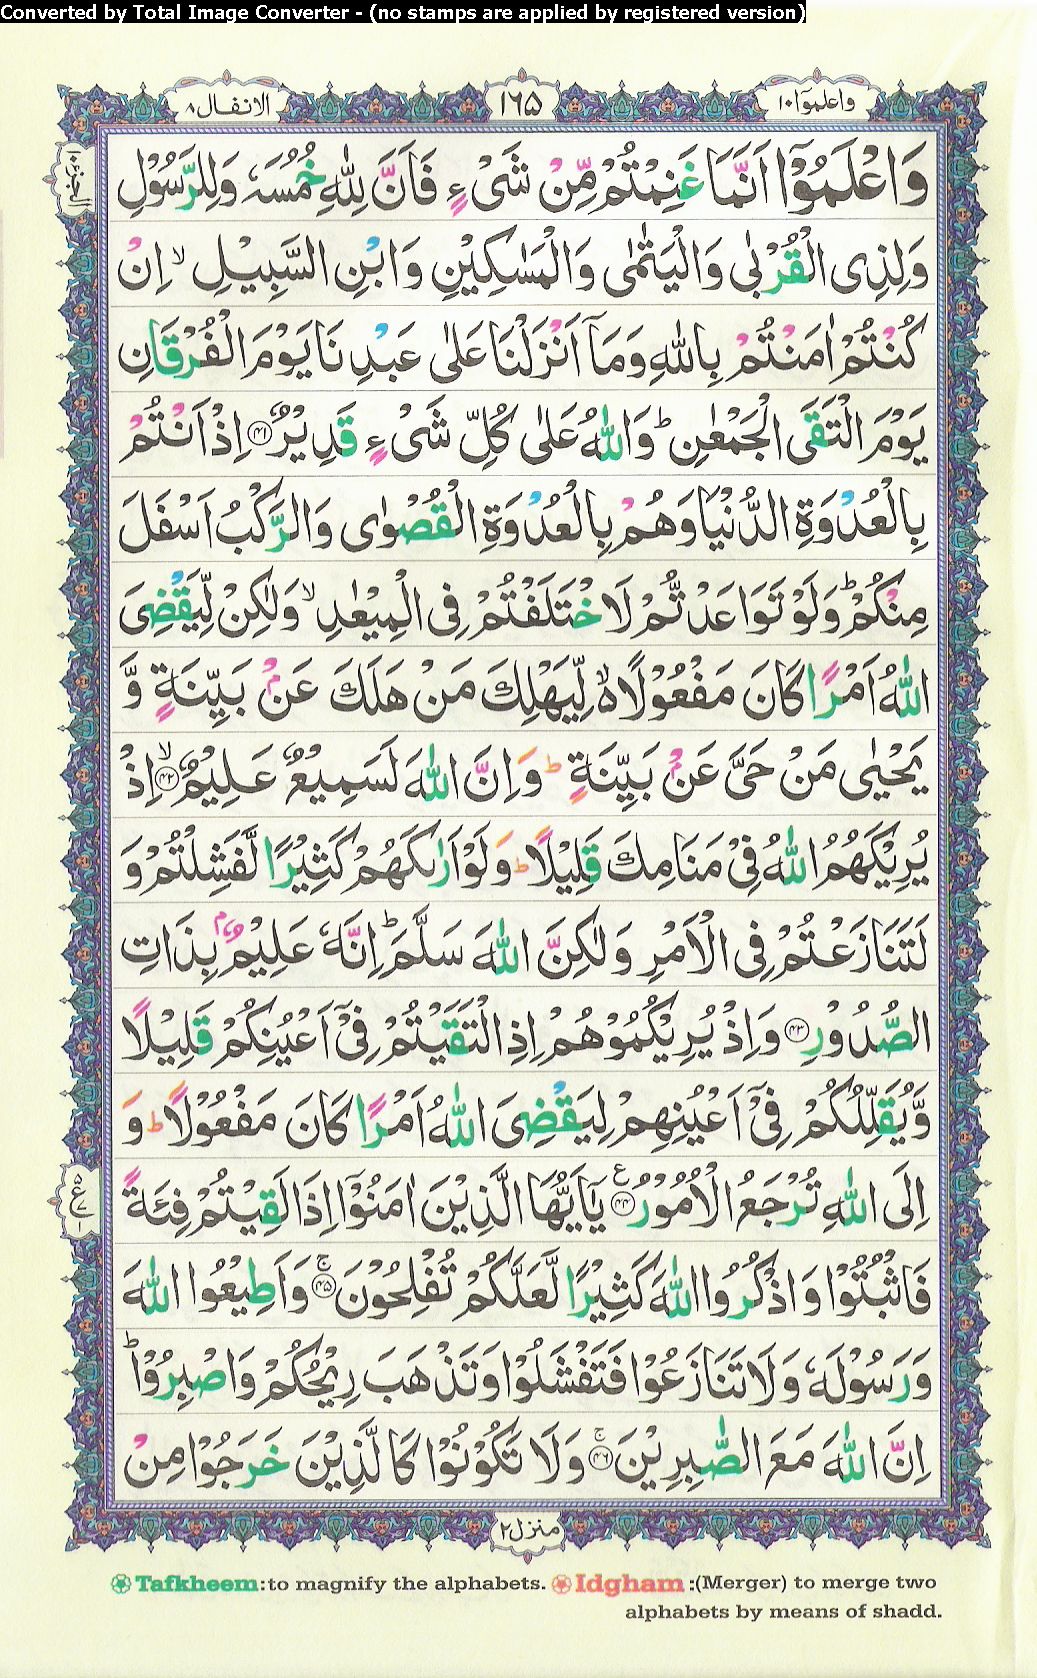 Converted by Total Image Converter - (no stamps are applied by registered version)
واعلموٓا ١٠
١٦٥
الانفال ٨
الجزء ١٠
وَاعْلَمُوْٓا اَنَّمَا غَنِمْتُمْ مِّنْ شَیْءٍ فَاَنَّ لِلّٰهِ خُمُسَهٗ وَلِلرَّسُوْلِ
وَلِذِی الْقُرْبٰی وَالْیَتٰمٰی وَالْمَسٰكِیْنِ وَابْنِ السَّبِیْلِ ۙ اِنْ
كُنْتُمْ اٰمَنْتُمْ بِاللّٰهِ وَمَاۤ اَنْزَلْنَا عَلٰی عَبْدِنَا یَوْمَ الْفُرْقَانِ
یَوْمَ الْتَقَی الْجَمْعٰنِ ؕ وَاللّٰهُ عَلٰی كُلِّ شَیْءٍ قَدِیْرٌ ۴۱ اِذْ اَنْتُمْ
بِالْعُدْوَةِ الدُّنْیَا وَهُمْ بِالْعُدْوَةِ الْقُصْوٰی وَالرَّكْبُ اَسْفَلَ
مِنْكُمْ ؕ وَلَوْ تَوَاعَدْتُّمْ لَاخْتَلَفْتُمْ فِی الْمِیْعٰدِ ۙ وَلٰكِنْ لِّیَقْضِیَ
اللّٰهُ اَمْرًا كَانَ مَفْعُوْلًا ۙ۬ لِّیَهْلِكَ مَنْ هَلَكَ عَنْۢ بَیِّنَةٍ وَّ
یَحْیٰی مَنْ حَیَّ عَنْۢ بَیِّنَةٍ ؕ وَاِنَّ اللّٰهَ لَسَمِیْعٌ عَلِیْمٌ ۴۲ ۙ اِذْ
یُرِیْكَهُمُ اللّٰهُ فِیْ مَنَامِكَ قَلِیْلًا ؕ وَلَوْ اَرٰىكَهُمْ كَثِیْرًا لَّفَشِلْتُمْ وَ
لَتَنَازَعْتُمْ فِی الْاَمْرِ وَلٰكِنَّ اللّٰهَ سَلَّمَ ؕ اِنَّهٗ عَلِیْمٌۢ بِذَاتِ
الصُّدُوْرِ ۴۳ وَاِذْ یُرِیْكُمُوْهُمْ اِذِ الْتَقَیْتُمْ فِیْۤ اَعْیُنِكُمْ قَلِیْلًا
وَّیُقَلِّلُكُمْ فِیْۤ اَعْیُنِهِمْ لِیَقْضِیَ اللّٰهُ اَمْرًا كَانَ مَفْعُوْلًا ؕ وَ
اِلَی اللّٰهِ تُرْجَعُ الْاُمُوْرُ ۴۴ ع یٰۤاَیُّهَا الَّذِیْنَ اٰمَنُوْۤا اِذَا لَقِیْتُمْ فِئَةً
فَاثْبُتُوْا وَاذْكُرُوا اللّٰهَ كَثِیْرًا لَّعَلَّكُمْ تُفْلِحُوْنَ ۴۵ ۚ وَاَطِیْعُوا اللّٰهَ
وَرَسُوْلَهٗ وَلَا تَنَازَعُوْا فَتَفْشَلُوْا وَتَذْهَبَ رِیْحُكُمْ وَاصْبِرُوْا ؕ
اِنَّ اللّٰهَ مَعَ الصّٰبِرِیْنَ ۴۶ ۚ وَلَا تَكُوْنُوْا كَالَّذِیْنَ خَرَجُوْا مِنْ
منزل ٢
Tafkheem:to magnify the alphabets. Idgham :(Merger) to merge two
alphabets by means of shadd.